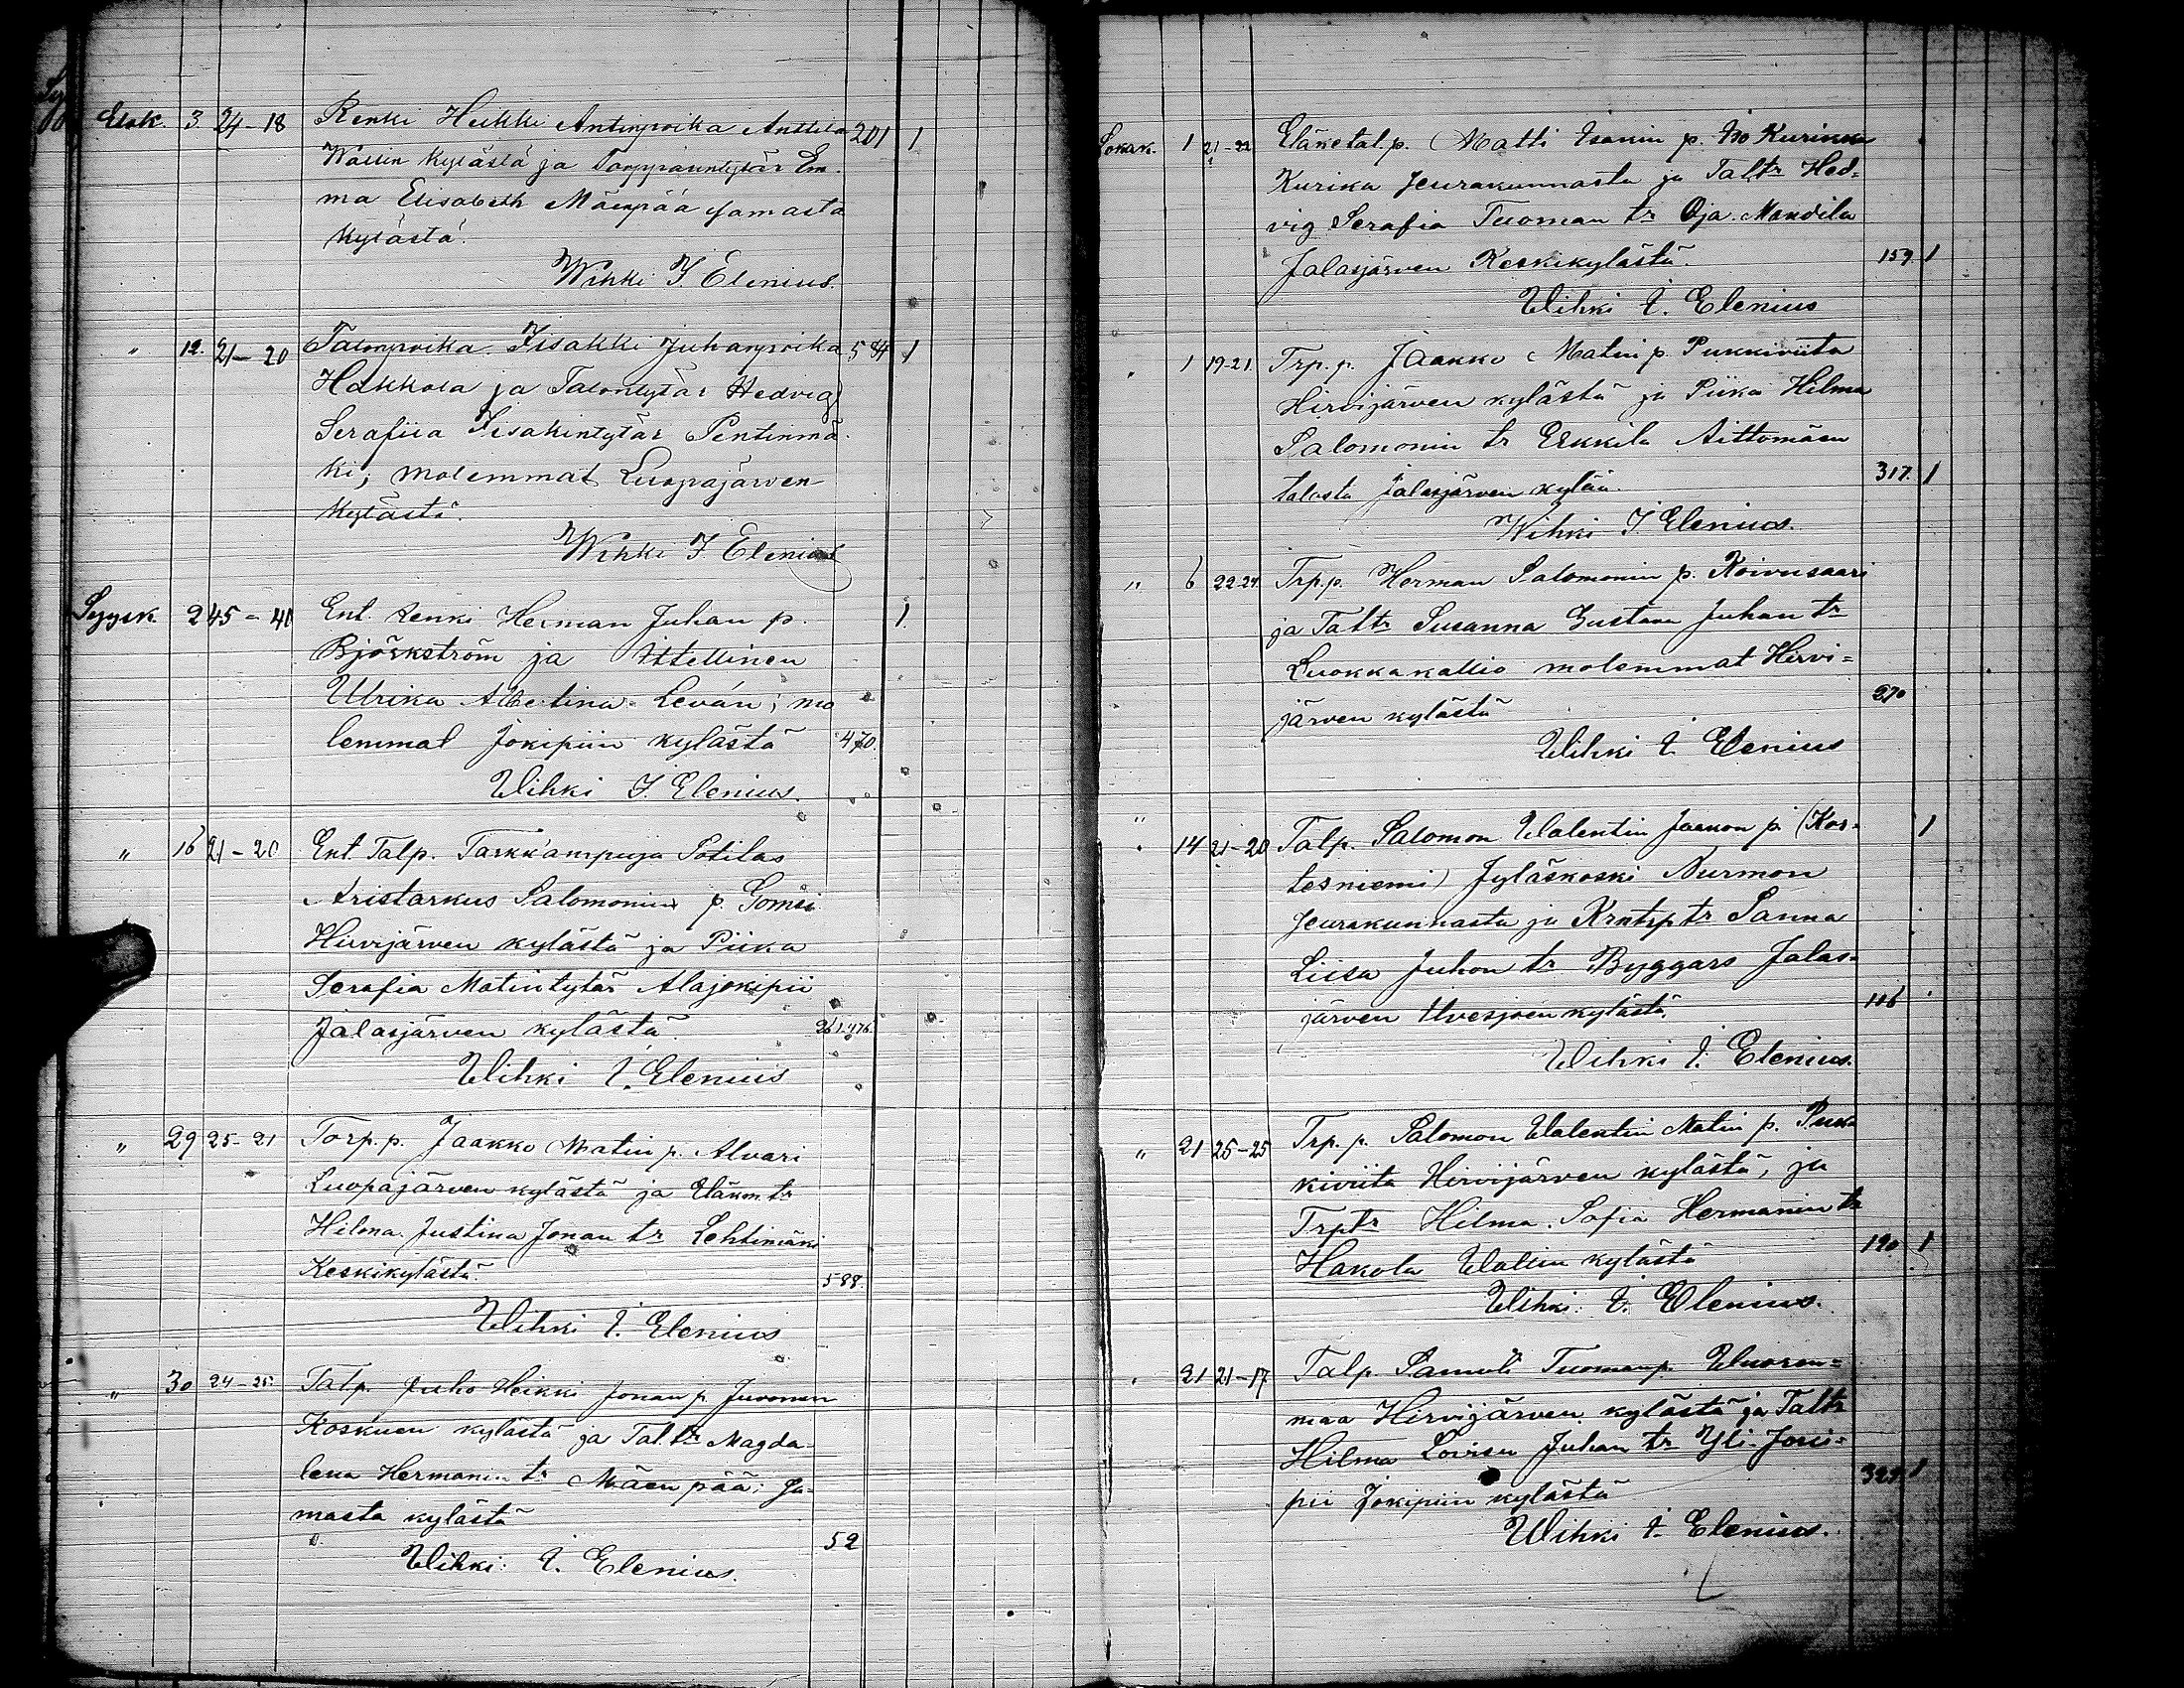 Elok. 3. 24-18 Renki Heikki Antinpoika Anttila 201 1
Wallin kylästä ja Torpparintytär Em-
ma Elisabeth Mäenpää samasta
kylästä.
Wihki I Elenius.
" 12. 21-20 Talonpoika Iisakki Juhanpoika 584 1
Hakkola ja Talontytär Hedvig
Serafiia Iisakintytär Pentinmä-
ki; molemmat Luopajärven
kylästä.
Wihki I Elenius
Syysk. 2 45-40 Ent. renki Herman Juhan p. 1
Björkström ja Ittellinen
Ulrika Albertina Leván; mo
lemmat Jokipiin kylästä 470.
Wihki I. Elenius.
" 16 21-20 Ent. Talp. Tarkk'ampuja Potilas
Aristarkus Salomonin p. Somsi
Hirvijärven kylästä ja Piika
Serafia Matintytär Alajokipii
Jalasjärven kylästä 261.476.
Wihki I. Elenius
" 29 25-21 Torp.p. Jaakko Matin p. Alvari
Luopajärven kylästä ja tr
Hilma Justina Jonan tr Lehtimäki
Keskikylästä. 588.
Wihki I. Elenius
" 30 24-25. Talp. Juho Heikki Jonan p. Juvonen
Koskuen kylästä ja Tal.tr Magda-
lena Hermanin tr Mäenpää; sa-
masta kylästä
52
Wihki: I. Elenius.
Lokak. 1 21-22 Eläketal.p. Matti Isakin p. Iso Kurikka
Kurika seurakunnasta ja Taltr Hed=
vig Serafia Tuoman tr Oja-Mandila
Jalasjärven Keskikylästä. 159 1
Wihki I. Elenius
" 1 19-21. Trp.p. Jaakko Matin p. Pukkiviita
Hirvijärven kylästä ja Piika Hilma
Salomonin tr Erkkila Aittomäen
talosta Jalasjärven kylää. 317. 1
Wihki I. Elenius.
" 6 22-24. Trp.p. Herman Salomonin p. Koivusaari
ja Taltr Susanna Gustava Juhan tr
Luokkakallio molemmat Hirvi=
järven kylästä 270
Wihki I. Elenius
" 14 21-20 Talp. Salomon Walentin Jaakon p. (Kor- 1
tesniemi) Jyläskoski Nurmon
seurakunnasta ja tr Sanna
Liisa Juhon tr Byggars Jalas-
järven Ilvesjoen kylästä. 116
Wihki I. Elenius.
" 21 25-25 Trp.p. Salomon Walentin Matin p. Puk-
kiviita Hirvijärven kylästä, ja
Trptr Hilma Sofia Hermanin tr
Hakola Wallin kylästä 190 1
Wihki: I. Elenius.
" 21 21-17 Talp. Samuli Tuomanp. Wuoren=
maa Hirvijärven kylästä ja Taltr
Hilma Lovisa Juhan tr Yli-Joki=
pii Jokipiin kylästä 329. 1
Wihki I. Elenius.